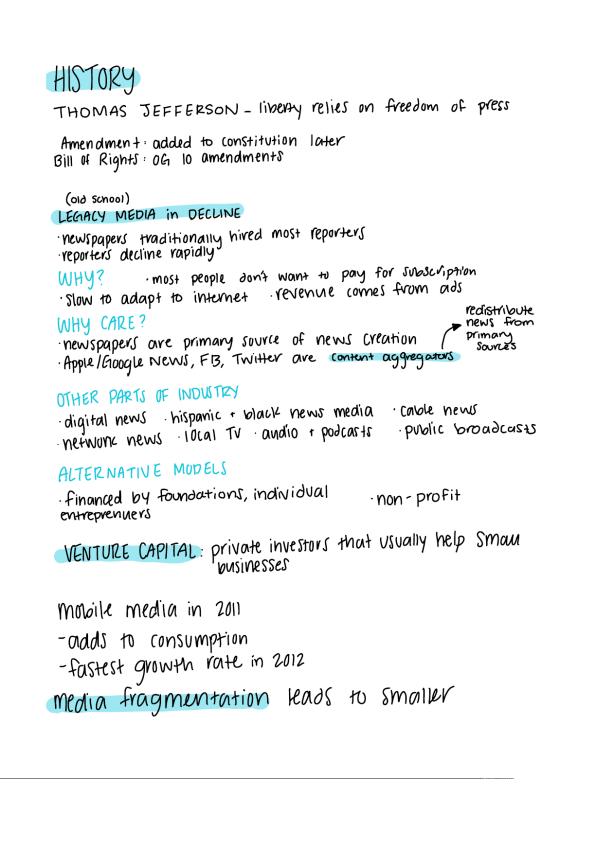 HISTORY
THOMAS JEFFERSON - liberty relies on freedom of press
Amendment: added to constitution later
Bill of Rights: OG 10 amendments
(old school)
LEGACY MEDIA in DECLINE
·newspapers traditionally hired most reporters
·reporters decline rapidly
WHY? ·most people don't want to pay for subscription
·slow to adapt to internet ·revenue comes from ads
WHY CARE?
·newspapers are primary source of news creation
·Apple/Google News, FB, Twitter are content aggregators
redistribute
news from
primary
sources
OTHER PARTS OF INDUSTRY
·digital news ·hispanic + black news media ·cable news
·network news ·local TV ·audio + podcasts ·public broadcasts
ALTERNATIVE MODELS
·financed by foundations, individual ·non-profit
entreprenuers
VENTURE CAPITAL: private investors that usually help small
businesses
mobile media in 2011
-adds to consumption
-fastest growth rate in 2012
media fragmentation leads to smaller